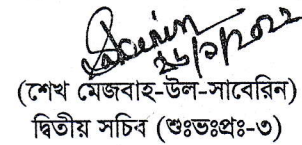 ২৮/৯/২০২২
(শেখ মেজবাহ-উল-সাবেরিন)
দ্বিতীয় সচিব (শুঃভঃপ্রঃ-৩)